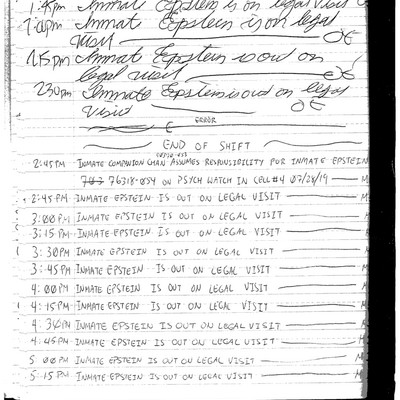 1:45pm Inmat Epstein is on legal visit
2:00pm Inmat Epstein is on legal
visit OE
2:15pm Inmat Epstein is out on
legal visit OE
2:30pm Inmate Epstein is out on legal
visit OE
ERROR
END OF SHIFT
2:45PM INMATE COMPANION CHAN ASSUMES RESPONSIBILITY FOR INMATE EPSTEIN
76318-054 ON PSYCH WATCH IN CELL #4 07/28/19
2:45PM INMATE EPSTEIN IS OUT ON LEGAL VISIT
3:00PM INMATE EPSTEIN IS OUT ON LEGAL VISIT
3:15PM INMATE EPSTEIN IS OUT ON LEGAL VISIT
3:30PM INMATE EPSTEIN IS OUT ON LEGAL VISIT
3:45PM INMATE EPSTEIN IS OUT ON LEGAL VISIT
4:00PM INMATE EPSTEIN IS OUT ON LEGAL VISIT
4:15PM INMATE EPSTEIN IS OUT ON LEGAL VISIT
4:30PM INMATE EPSTEIN IS OUT ON LEGAL VISIT
4:45PM INMATE EPSTEIN IS OUT ON LEGAL VISIT
5:00PM INMATE EPSTEIN IS OUT ON LEGAL VISIT
5:15PM INMATE EPSTEIN IS OUT ON LEGAL VISIT